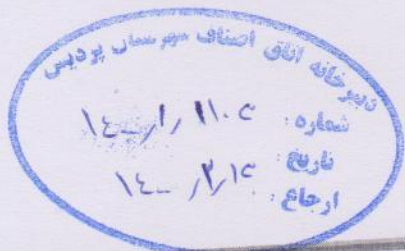 دبیرخانه اتاق اصناف شهرستان پردیس
شماره: ۱۴۰۰/۱/۱۱۰۲
تاریخ: ۱۴۰۰/۳/۱۲
ارجاع: